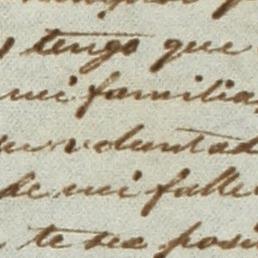 tengo que
mi familia,
voluntad
de mi falle
te sea posi